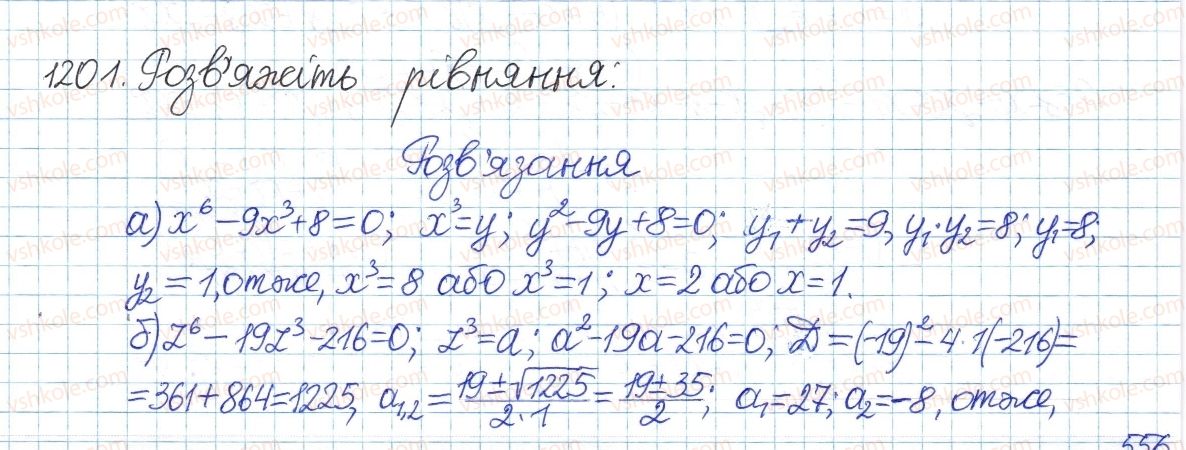 1201. Розв'яжіть рівняння:
Розв'язання
а) x⁶ - 9x³ + 8 = 0; x³ = y; y² - 9y + 8 = 0; y₁ + y₂ = 9, y₁·y₂ = 8; y₁ = 8;
y₂ = 1, отже, x³ = 8 або x³ = 1; x = 2 або x = 1.
б) z⁶ - 19z³ - 216 = 0; z³ = a; a² - 19a - 216 = 0; Д = (-19)² - 4·1(-216) =
= 361 + 864 = 1225, a₁,₂ = (19 ± √1225)/(2·1) = (19 ± 35)/2; a₁ = 27; a₂ = -8, отже,
556